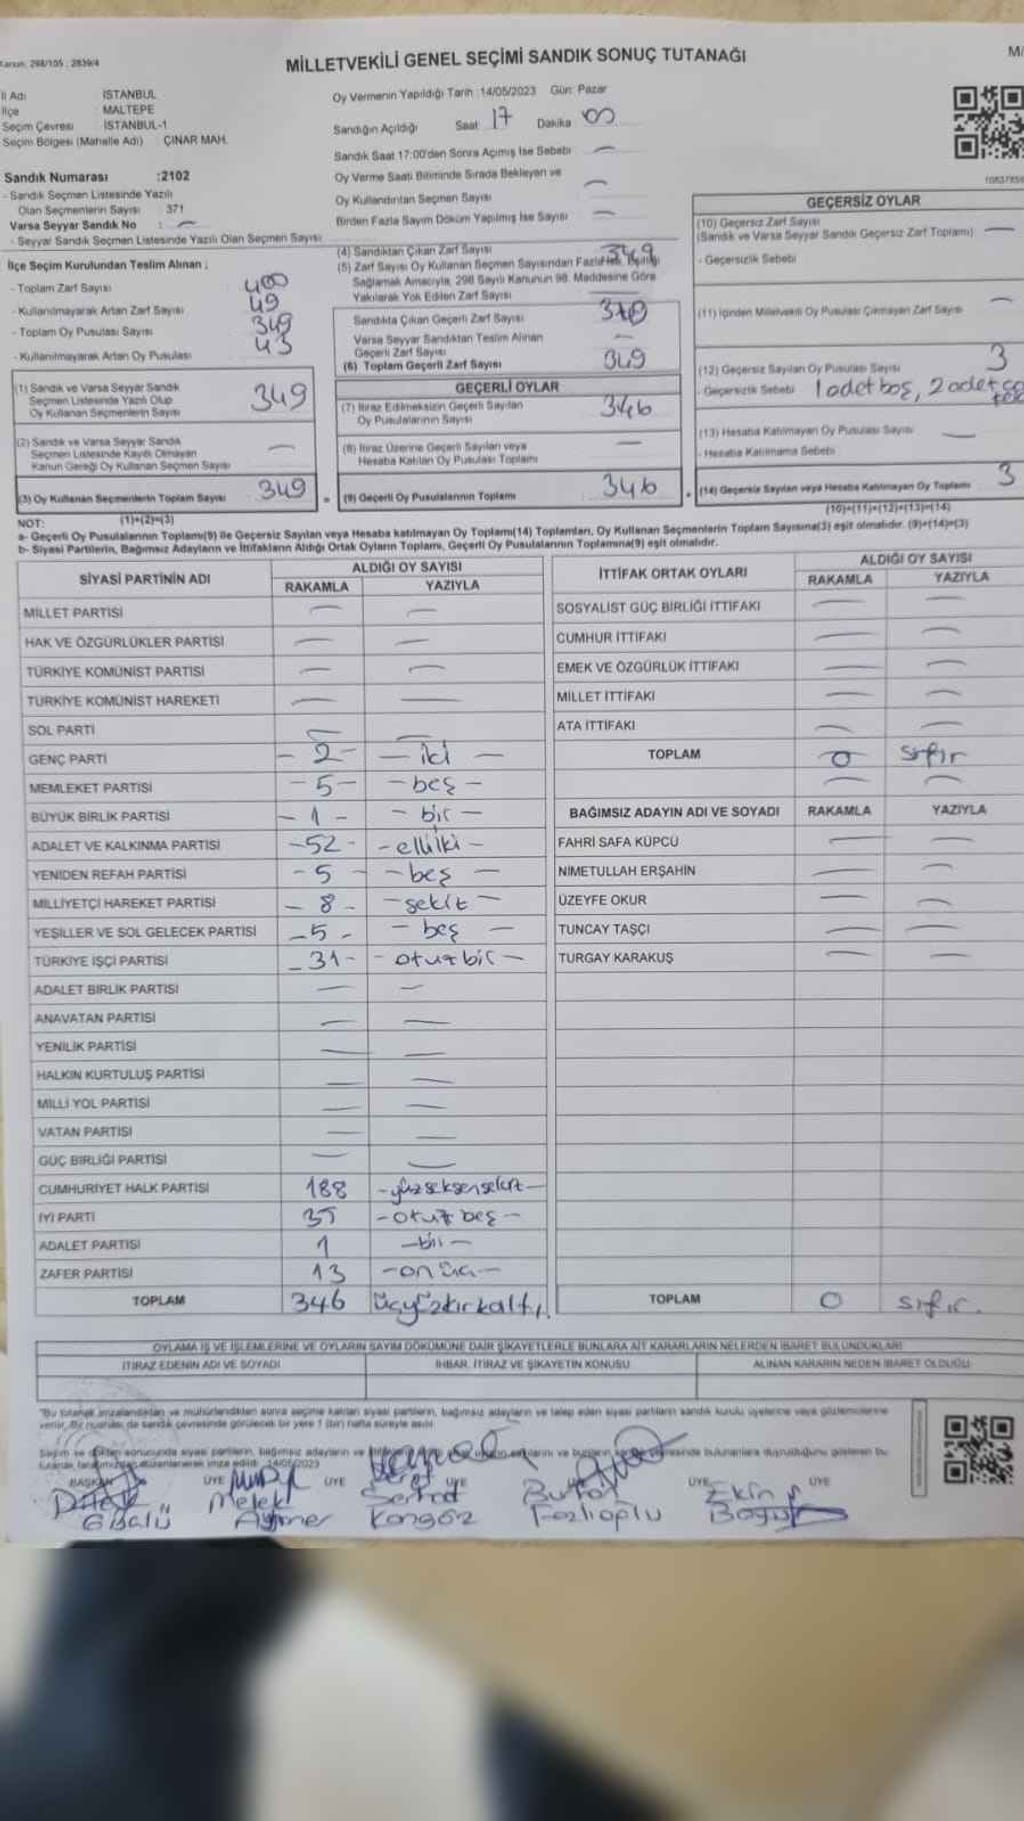 Kanun: 298/105 ; 2839/4
MİLLETVEKİLİ GENEL SEÇİMİ SANDIK SONUÇ TUTANAĞI
İl Adı İSTANBUL
İlçe MALTEPE
Seçim Çevresi İSTANBUL-1
Seçim Bölgesi (Mahalle Adı) ÇINAR MAH.
Sandık Numarası :2102
- Sandık Seçmen Listesinde Yazılı
Olan Seçmenlerin Sayısı 371
Varsa Seyyar Sandık No : —
- Seyyar Sandık Seçmen Listesinde Yazılı Olan Seçmen Sayısı
Oy Vermenin Yapıldığı Tarih :14/05/2023 Gün: Pazar
Sandığın Açıldığı Saat 17 Dakika 00
Sandık Saat 17:00'den Sonra Açımış İse Sebebi —
Oy Verme Saati Bitiminde Sırada Bekleyen ve
Oy Kullandırılan Seçmen Sayısı —
Birden Fazla Sayım Döküm Yapılmış İse Sayısı —
İlçe Seçim Kurulundan Teslim Alınan ;
- Toplam Zarf Sayısı 400
- Kullanılmayarak Artan Zarf Sayısı 49
- Toplam Oy Pusulası Sayısı 349
- Kullanılmayarak Artan Oy Pusulası 43
(1) Sandık ve Varsa Seyyar Sandık
Seçmen Listesinde Yazılı Olup
Oy Kullanan Seçmenlerin Sayısı 349
(2) Sandık ve Varsa Seyyar Sandık
Seçmen Listesinde Kayıtlı Olmayan
Kanun Gereği Oy Kullanan Seçmen Sayısı —
(3) Oy Kullanan Seçmenlerin Toplam Sayısı 349
(1)+(2)=(3)
(4) Sandıktan Çıkan Zarf Sayısı 349
(5) Zarf Sayısı Oy Kullanan Seçmen Sayısından Fazla
Sağlamak Amacıyla, 298 Sayılı Kanunun 98. Maddesine Göre
Yakılarak Yok Edilen Zarf Sayısı
Sandıkta Çıkan Geçerli Zarf Sayısı
Varsa Seyyar Sandıktan Teslim Alınan
Geçerli Zarf Sayısı —
(6) Toplam Geçerli Zarf Sayısı 349
GEÇERLİ OYLAR
(7) İtiraz Edilmeksizin Geçerli Sayılan
Oy Pusulalarının Sayısı 346
(8) İtiraz Üzerine Geçerli Sayılan veya
Hesaba Katılan Oy Pusulası Toplamı —
(9) Geçerli Oy Pusulalarının Toplamı 346
GEÇERSİZ OYLAR
(10) Geçersiz Zarf Sayısı
(Sandık ve Varsa Seyyar Sandık Geçersiz Zarf Toplamı) —
- Geçersizlik Sebebi
(11) İçinden Milletvekili Oy Pusulası Çıkmayan Zarf Sayısı —
(12) Geçersiz Sayılan Oy Pusulası Sayısı 3
- Geçersizlik Sebebi 1 adet boş, 2 adet
(13) Hesaba Katılmayan Oy Pusulası Sayısı —
- Hesaba Katılmama Sebebi
(14) Geçersiz Sayılan veya Hesaba Katılmayan Oy Toplamı 3
(10)+(11)+(12)+(13)=(14)
NOT:
a- Geçerli Oy Pusulalarının Toplamı(9) ile Geçersiz Sayılan veya Hesaba katılmayan Oy Toplamı(14) Toplamları, Oy Kullanan Seçmenlerin Toplam Sayısına(3) eşit olmalıdır. (9)+(14)=(3)
b- Siyasi Partilerin, Bağımsız Adayların ve İttifakların Aldığı Ortak Oyların Toplamı, Geçerli Oy Pusulalarının Toplamına(9) eşit olmalıdır.
SİYASİ PARTİNİN ADI ALDIĞI OY SAYISI
RAKAMLA YAZIYLA
MİLLET PARTİSİ — —
HAK VE ÖZGÜRLÜKLER PARTİSİ — —
TÜRKİYE KOMÜNİST PARTİSİ — —
TÜRKİYE KOMÜNİST HAREKETİ — —
SOL PARTİ — —
GENÇ PARTİ - 2 - — iki —
MEMLEKET PARTİSİ - 5 - - beş -
BÜYÜK BİRLİK PARTİSİ - 1 - - bir -
ADALET VE KALKINMA PARTİSİ - 52 - - elliiki -
YENİDEN REFAH PARTİSİ - 5 - - beş —
MİLLİYETÇİ HAREKET PARTİSİ - 8 - - sekiz -
YEŞİLLER VE SOL GELECEK PARTİSİ - 5 - - beş —
TÜRKİYE İŞÇİ PARTİSİ - 31 - - otuzbir -
ADALET BİRLİK PARTİSİ — —
ANAVATAN PARTİSİ — —
YENİLİK PARTİSİ — —
HALKIN KURTULUŞ PARTİSİ — —
MİLLİ YOL PARTİSİ — —
VATAN PARTİSİ — —
GÜÇ BİRLİĞİ PARTİSİ — —
CUMHURİYET HALK PARTİSİ 188 - yüzseksensekiz -
İYİ PARTİ 35 - otuz beş -
ADALET PARTİSİ 1 - bir -
ZAFER PARTİSİ 13 - on üç -
TOPLAM 346 üçyüzkırkaltı
İTTİFAK ORTAK OYLARI ALDIĞI OY SAYISI
RAKAMLA YAZIYLA
SOSYALİST GÜÇ BİRLİĞİ İTTİFAKI — —
CUMHUR İTTİFAKI — —
EMEK VE ÖZGÜRLÜK İTTİFAKI — —
MİLLET İTTİFAKI — —
ATA İTTİFAKI — —
TOPLAM 0 sıfır
BAĞIMSIZ ADAYIN ADI VE SOYADI RAKAMLA YAZIYLA
FAHRİ SAFA KÜPCÜ — —
NİMETULLAH ERŞAHİN — —
ÜZEYFE OKUR — —
TUNCAY TAŞÇI — —
TURGAY KARAKUŞ — —
TOPLAM 0 sıfır.
OYLAMA İŞ VE İŞLEMLERİNE VE OYLARIN SAYIM DÖKÜMÜNE DAİR ŞİKAYETLERLE BUNLARA AİT KARARLARIN NELERDEN İBARET BULUNDUKLARI
İTİRAZ EDENİN ADI VE SOYADI İHBAR, İTİRAZ VE ŞİKAYETİN KONUSU ALINAN KARARIN NEDEN İBARET OLDUĞU
"Bu tutanak imzalandıktan ve mühürlendikten sonra seçime katılan siyasi partilerin, bağımsız adayların ve talep eden siyasi partilerin sandık kurulu üyelerine veya gözlemcilerine
verilir. Bir nüshası da sandık çevresinde görülecek bir yere 1 (bir) hafta süreyle asılır.
14/05/2023
BAŞKAN ÜYE ÜYE ÜYE ÜYE ÜYE
Dilek Melek Serhat Burak Ekin
Kongöz Fazlıoğlu